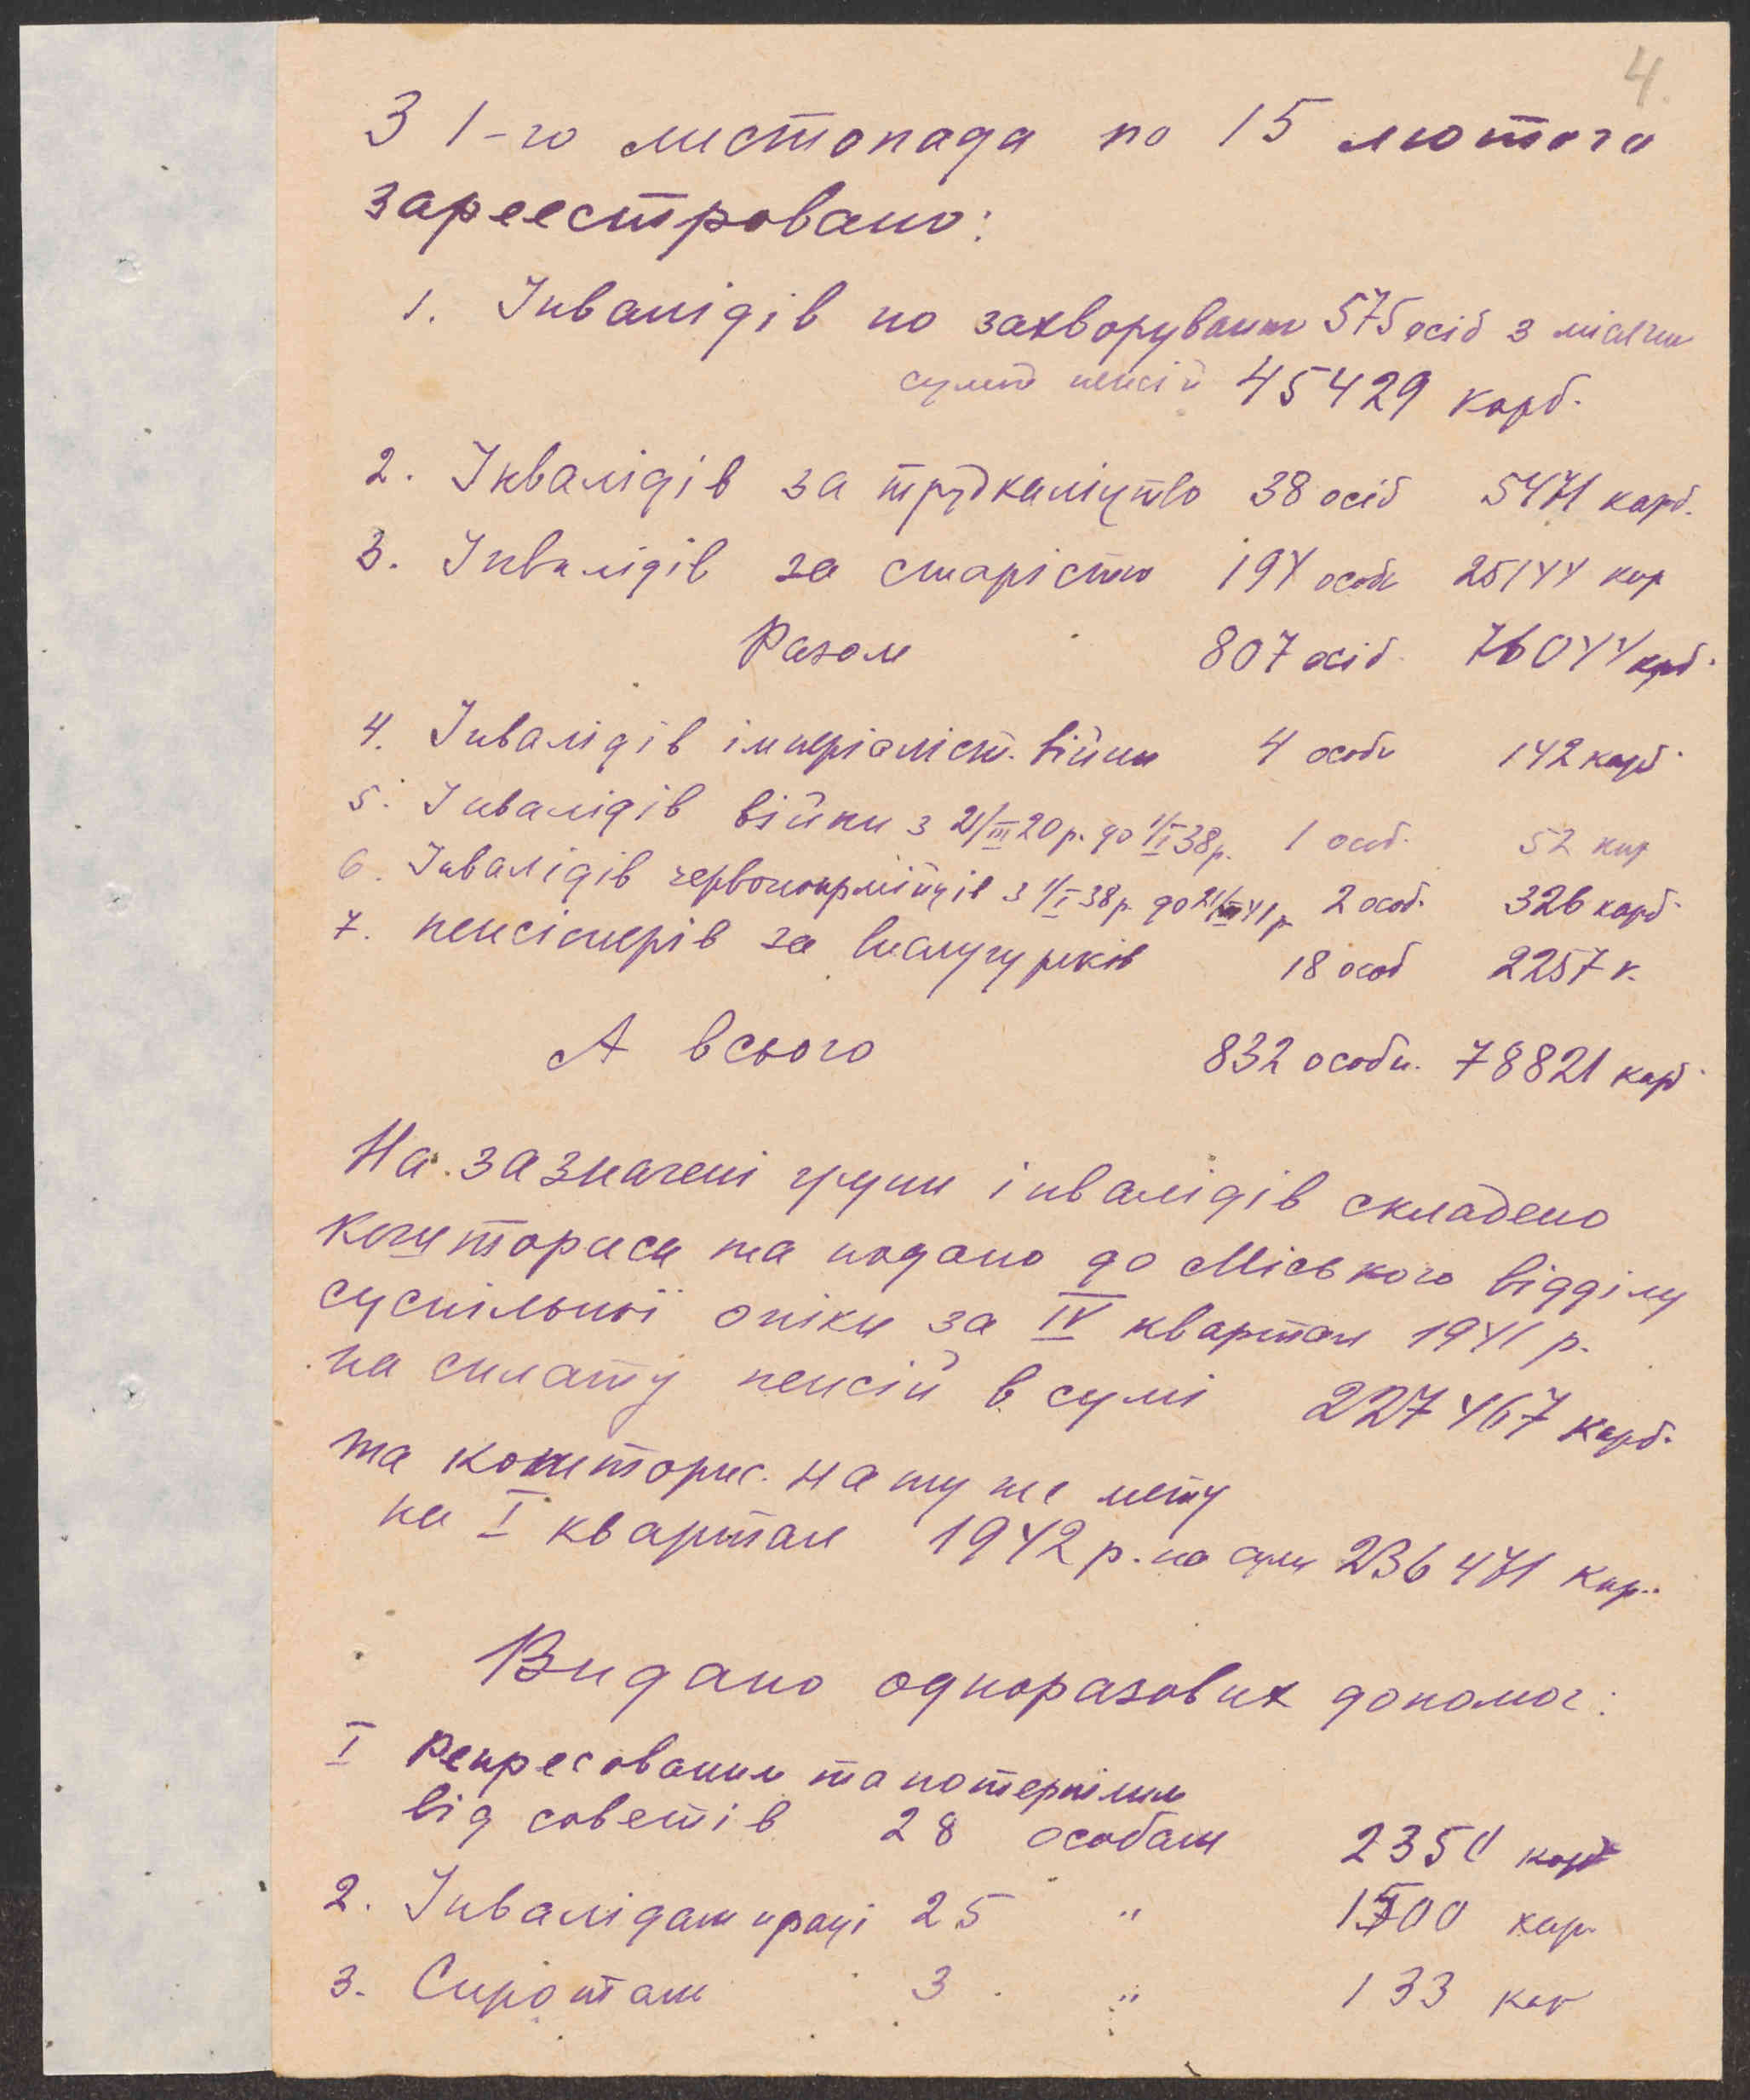 4.
З 1-го листопада по 15 лютого
зареестровано:
1. Інвалідів по захворуванню 575 осіб з місячн
сумою пенсій 45429 карб.
2. Інвалідів за трудкаліцтво 38 осіб 5471 карб.
3. Інвалідів за старістю 194 особи 25144 кар
Разом 807 осіб 76044 крб.
4. Інвалідів імперіаліст. війни 4 особи 142 карб.
5. Інвалідів війни з 21/III 20 р. до 1/I 38 р. 1 особ. 52 кар
6. Інвалідів червоноармійців з 1/I 38 р. до 41 р. 2 особ. 326 карб.
7. пенсіонерів за вислугу років 18 особ 2257 к.
А всього 832 особи. 78821 карб.
На зазначені групи інвалідів складено
кошториси та подано до Міського відділу
суспільної опіки за IV квартал 1941 р.
на сплату пенсій в сумі 227467 карб.
та кошторис. на ту же мету
на I квартал 1942 р. на суму 236471 кар..
Видано одноразових допомог:
I репресованим та потерпілим
від советів 28 особам 2350 карб
2. Інвалідам праці 25 " 1500 кар.
3. Сиротам 3 " 133 кар